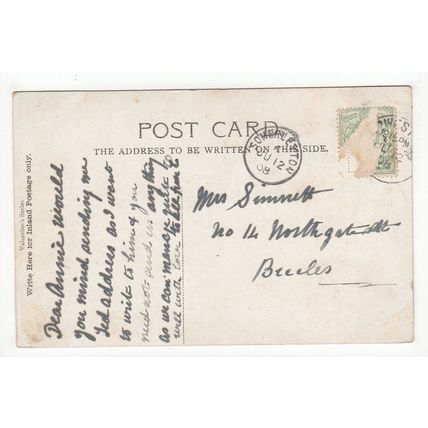 POST CARD.
THE ADDRESS TO BE WRITTEN ON THIS SIDE.
Valentine's Series.
Write Here for Inland Postage only.
Dear Annie would
you mind sending me
Ted address as I want
to write to him & you
need not send us anything
as we can manage quite
well with love to all from
JU 12
08
Mrs Simnett
No 14 Northgate St
Beccles